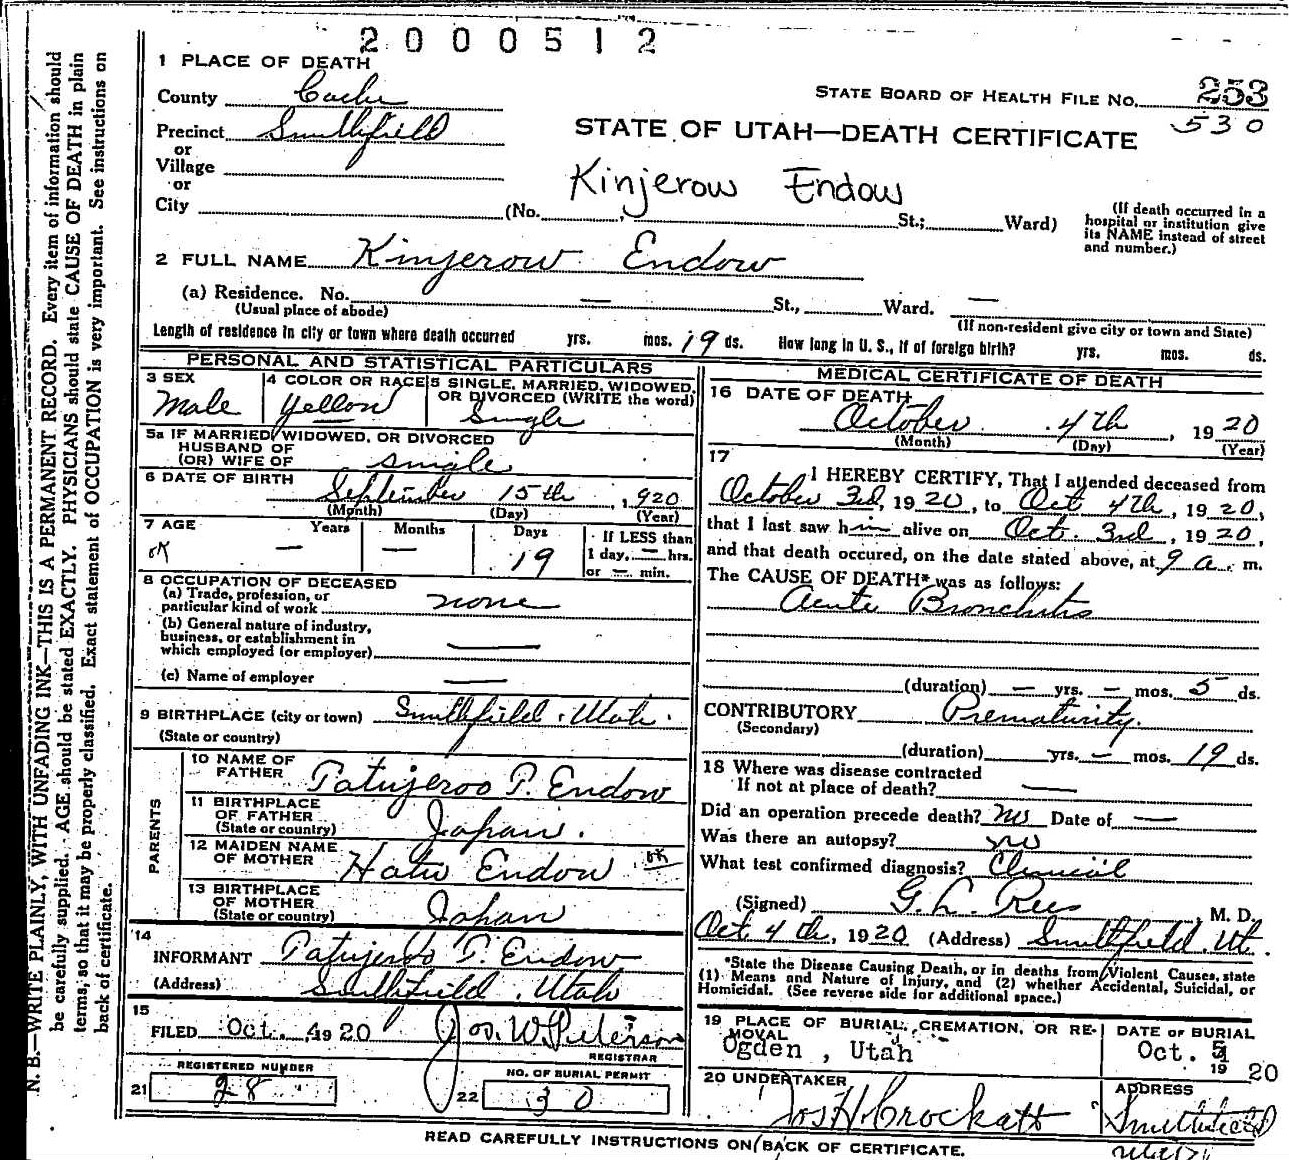 2 0 0 0 5 1 2
1 PLACE OF DEATH
County Cache
Precinct Smithfield
or
Village
or
City (No. St.; Ward)
STATE BOARD OF HEALTH FILE NO. 253
530
STATE OF UTAH—DEATH CERTIFICATE
Kinjerow Endow
(If death occurred in a
hospital or institution give
its NAME instead of street
and number.)
2 FULL NAME Kinjerow Endow
(a) Residence. No. — St., Ward. —
(Usual place of abode)
(If non-resident give city or town and State)
Length of residence in city or town where death occurred yrs. mos. 19 ds. How long in U. S., if of foreign birth? yrs. mos. ds.
PERSONAL AND STATISTICAL PARTICULARS
3 SEX
Male
4 COLOR OR RACE
Yellow
5 SINGLE, MARRIED, WIDOWED,
OR DIVORCED (WRITE the word)
Single
5a IF MARRIED, WIDOWED, OR DIVORCED
HUSBAND OF
(OR) WIFE OF single
6 DATE OF BIRTH
September 15th, 1920
(Month) (Day) (Year)
7 AGE Years Months Days If LESS than
OK — — 19 1 day, — hrs.
or — min.
8 OCCUPATION OF DECEASED
(a) Trade, profession, or
particular kind of work none
(b) General nature of industry,
business, or establishment in
which employed (or employer) —
(c) Name of employer —
9 BIRTHPLACE (city or town) Smithfield. Utah.
(State or country)
PARENTS
10 NAME OF
FATHER Patujeroo P. Endow
11 BIRTHPLACE
OF FATHER
(State or country) Japan.
12 MAIDEN NAME
OF MOTHER Hatu Endow OK
13 BIRTHPLACE
OF MOTHER
(State or country) Japan
14
INFORMANT Patujeroo P. Endow
(Address) Smithfield. Utah
15
FILED Oct. 4, 1920 Jos. W. Peterson
REGISTRAR
REGISTERED NUMBER
21 28
NO. OF BURIAL PERMIT
22 30
MEDICAL CERTIFICATE OF DEATH
16 DATE OF DEATH
October 4th, 1920
(Month) (Day) (Year)
17
I HEREBY CERTIFY, That I attended deceased from
October 3rd, 1920, to Oct 4th, 1920,
that I last saw him alive on Oct. 3rd, 1920,
and that death occured, on the date stated above, at 9 a. m.
The CAUSE OF DEATH* was as follows:
Acute Bronchitis
(duration) — yrs. — mos. 5 ds.
CONTRIBUTORY Prematurity.
(Secondary)
(duration) yrs. — mos. 19 ds.
18 Where was disease contracted
If not at place of death? —
Did an operation precede death? no Date of —
Was there an autopsy? no
What test confirmed diagnosis? Clinical
(Signed) G. L. Rees, M. D.
Oct. 4th, 1920 (Address) Smithfield. Ut.
*State the Disease Causing Death, or in deaths from Violent Causes, state
(1) Means and Nature of Injury, and (2) whether Accidental, Suicidal, or
Homicidal. (See reverse side for additional space.)
19 PLACE OF BURIAL, CREMATION, OR RE-
MOVAL
Ogden, Utah
DATE OF BURIAL
Oct. 5
19 20
20 UNDERTAKER
Jos H. Crockatt
ADDRESS
Smithfield
Utah
READ CAREFULLY INSTRUCTIONS ON BACK OF CERTIFICATE.
N. B.—WRITE PLAINLY, WITH UNFADING INK—THIS IS A PERMANENT RECORD. Every item of information should
be carefully supplied. AGE should be stated EXACTLY. PHYSICIANS should state CAUSE OF DEATH in plain
terms, so that it may be properly classified. Exact statement of OCCUPATION is very important. See instructions on
back of certificate.